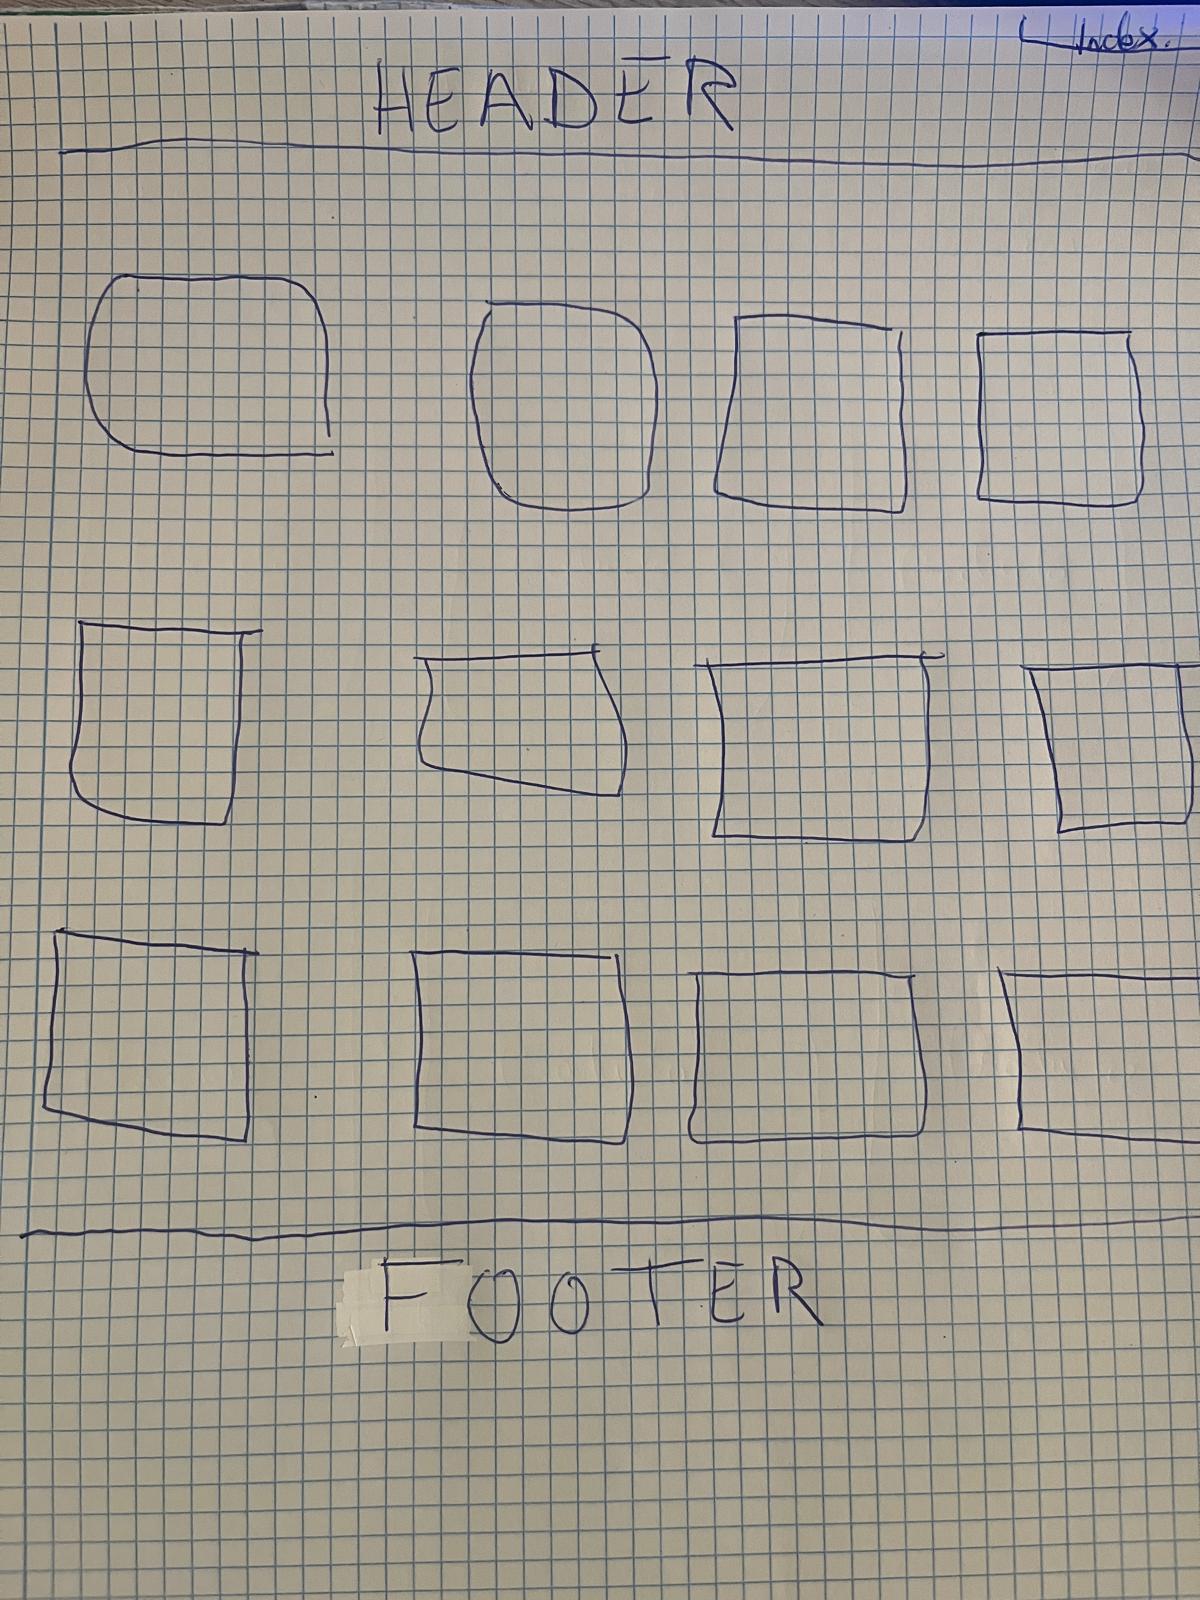 Index.
HEADER
FOOTER